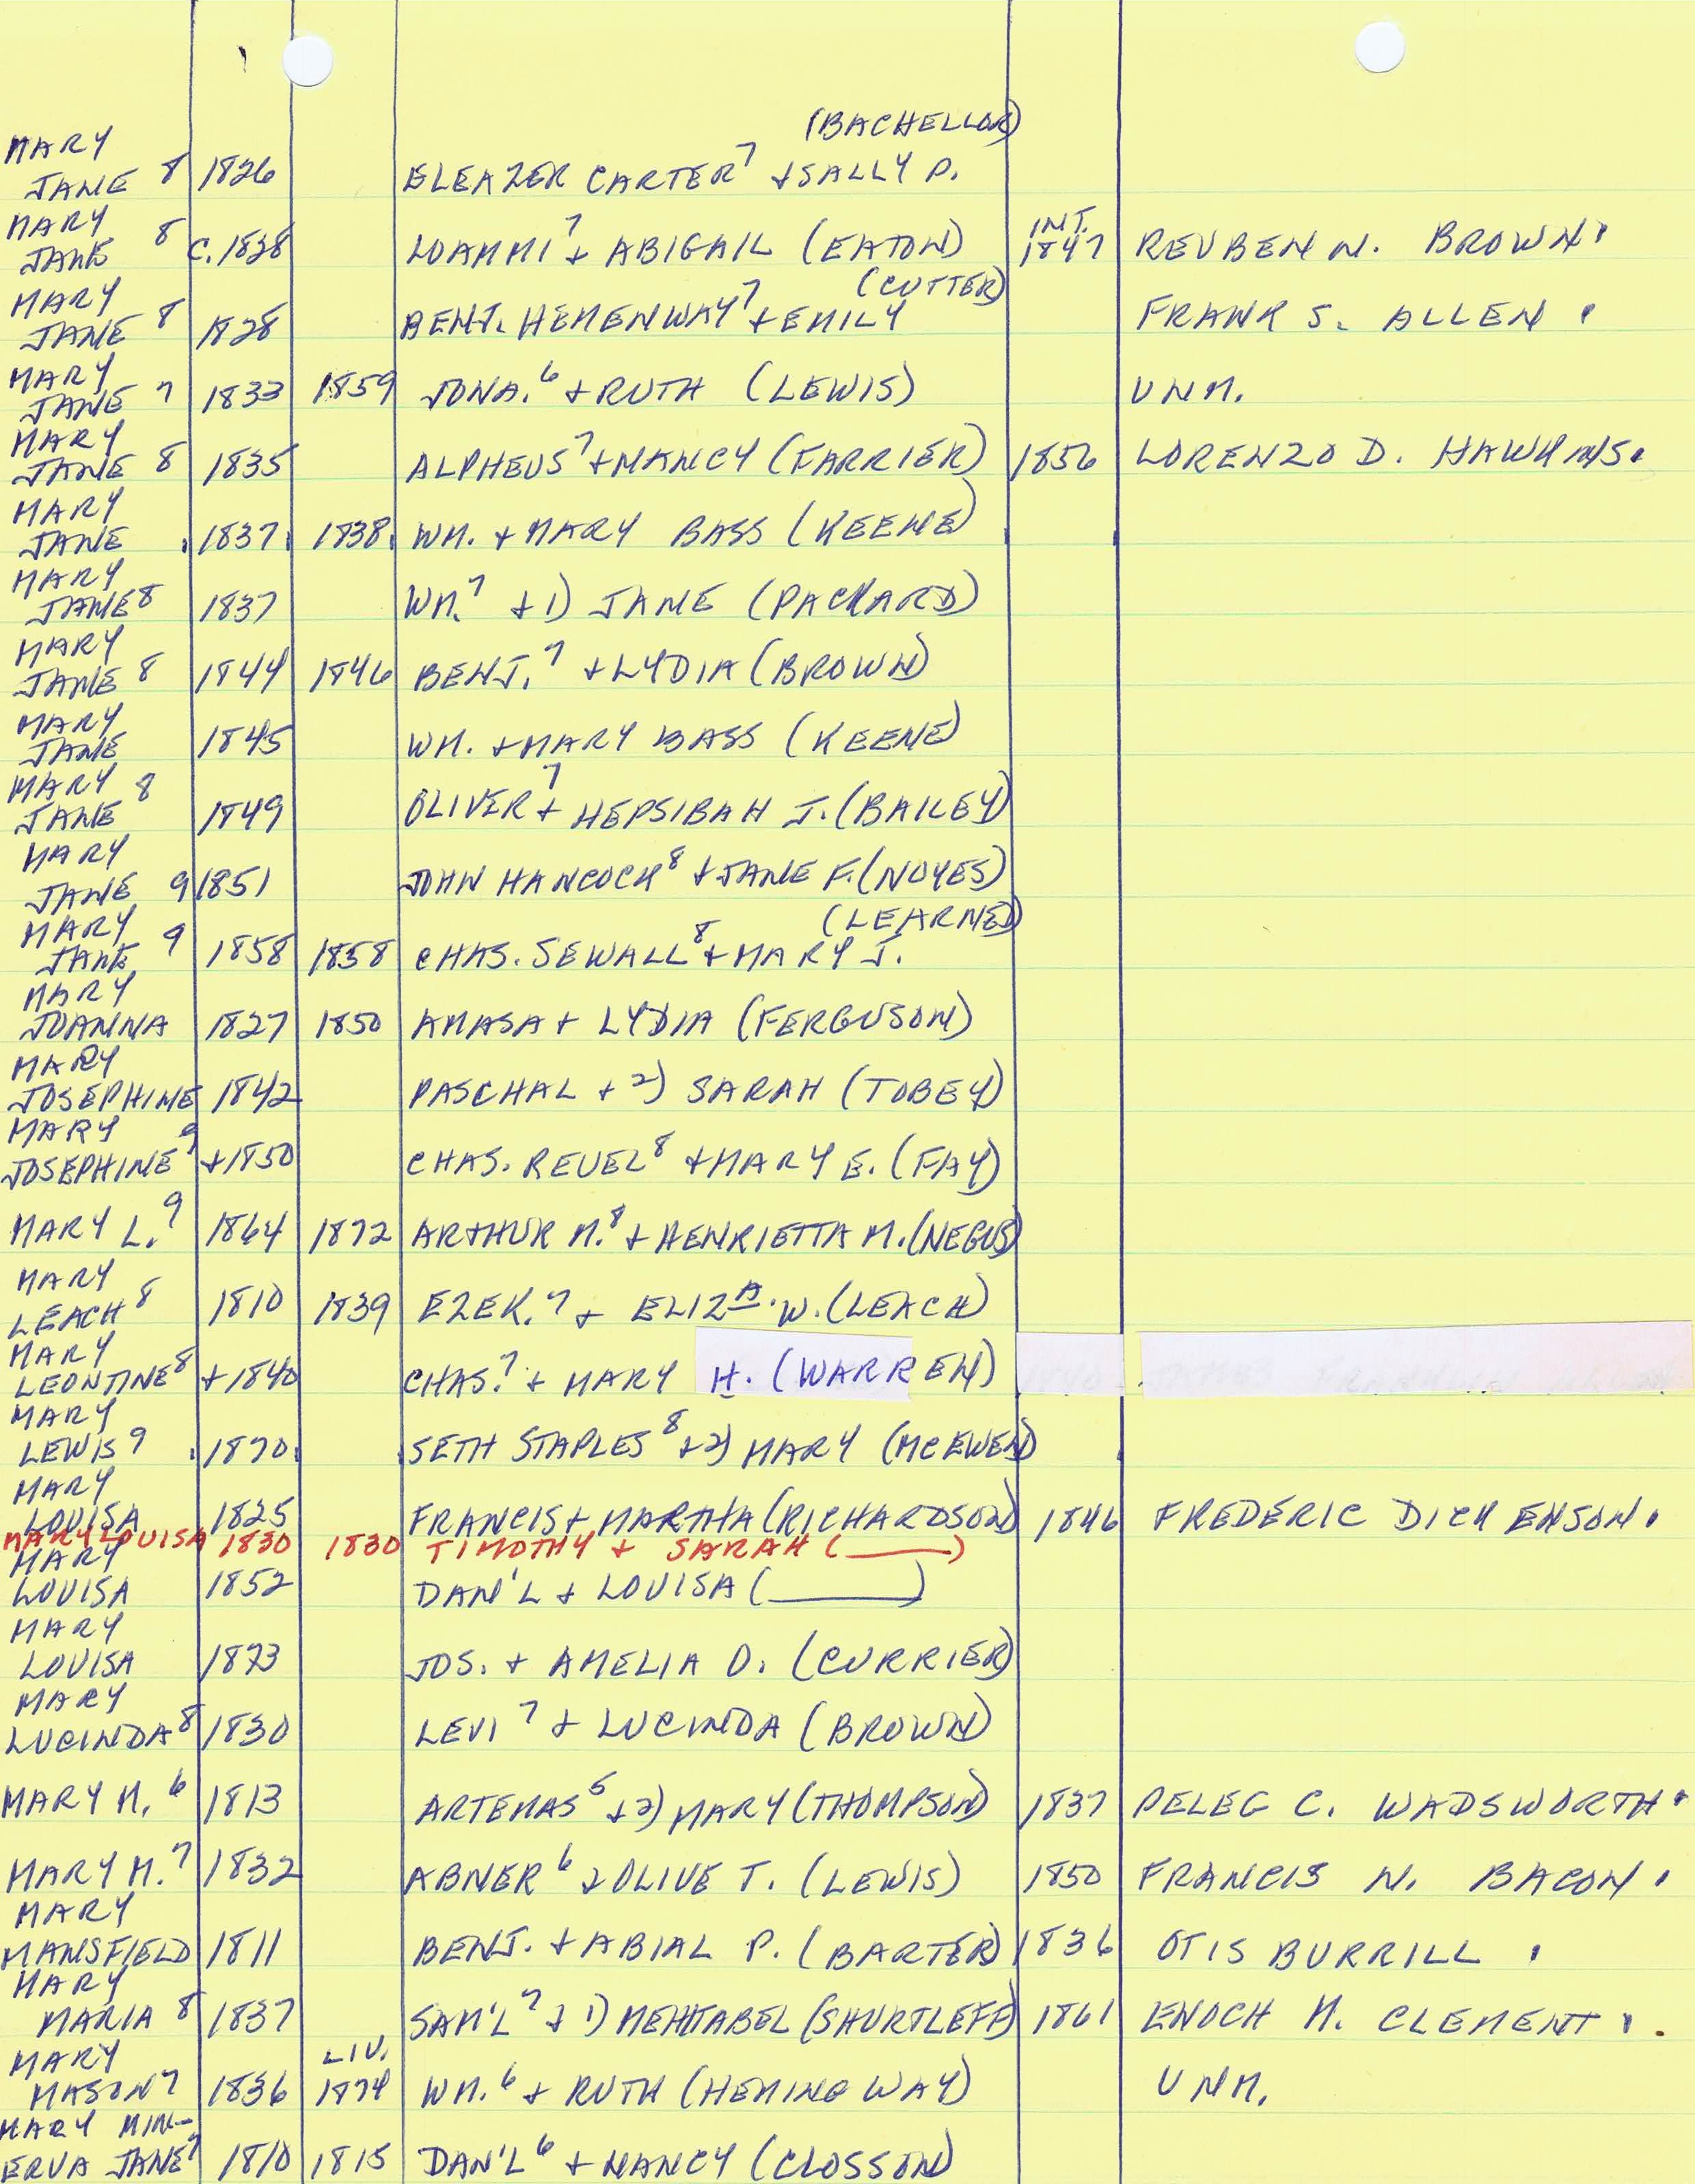 (BACHELLOR)
MARY
JANE 8 1826 ELEAZER CARTER 7 + SALLY P.
MARY INT.
JANE 8 C. 1828 LOAMMI 7 + ABIGAIL (EATON) 1847 REUBEN N. BROWN.
MARY (CUTTER)
JANE 8 1828 BENJ. HEMENWAY 7 + EMILY FRANK S. ALLEN.
MARY
JANE 7 1833 1859 JONA. 6 + RUTH (LEWIS) UNM.
MARY
JANE 8 1835 ALPHEUS 7 + NANCY (FARRIER) 1856 LORENZO D. HAWKINS.
MARY
JANE 1837 1838 WM. + MARY BASS (KEENE)
MARY
JANE 8 1837 WM. 7 + 1) JANE (PACKARD)
MARY
JANE 8 1844 1846 BENJ. 7 + LYDIA (BROWN)
MARY
JANE 1845 WM. + MARY BASS (KEENE)
MARY
JANE 8 1849 OLIVER 7 + HEPSIBAH J. (BAILEY)
MARY
JANE 9 1851 JOHN HANCOCK 8 + JANE F. (NOYES)
MARY (LEARNED)
JANE 9 1858 1858 CHAS. SEWALL 8 + MARY J.
MARY
JOANNA 1827 1850 AMASA + LYDIA (FERGUSON)
MARY
JOSEPHINE 1842 PASCHAL + 2) SARAH (TOBEY)
MARY
JOSEPHINE 9 +1850 CHAS. REUEL 8 + MARY E. (FAY)
MARY L. 9 1864 1872 ARTHUR M. 8 + HENRIETTA M. (NEGUS)
MARY
LEACH 8 1810 1839 EZEK. 7 + ELIZ H. W. (LEACH)
MARY
LEONTINE 8 +1840 CHAS. 7 + MARY H. (WARREN)
MARY
LEWIS 9 1870 SETH STAPLES 8 + 2) MARY (MCEWEN)
MARY
LOUISA 1825 FRANCIS + MARTHA (RICHARDSON) 1846 FREDERIC DICKENSON.
MARY LOUISA 1830 1830 TIMOTHY + SARAH (____)
MARY
LOUISA 1852 DAN'L + LOUISA (____)
MARY
LOUISA 1873 JOS. + AMELIA O. (CURRIER)
MARY
LUCINDA 8 1830 LEVI 7 + LUCINDA (BROWN)
MARY M. 6 1813 ARTEMAS 5 + 2) MARY (THOMPSON) 1837 PELEG C. WADSWORTH.
MARY M. 7 1832 ABNER 6 + OLIVE T. (LEWIS) 1850 FRANCIS N. BACON.
MARY
MANSFIELD 1811 BENJ. + ABIAL P. (BARTER) 1836 OTIS BURRILL.
MARY
MARIA 8 1837 SAM'L 7 + 1) MEHITABEL (SHURTLEFF) 1861 ENOCH M. CLEMENT.
MARY LIV.
MASON 7 1836 1874 WM. 6 + RUTH (HEMINGWAY) UNM.
MARY MIN-
ERVA JANE 7 1810 1815 DAN'L 6 + NANCY (CLOSSON)